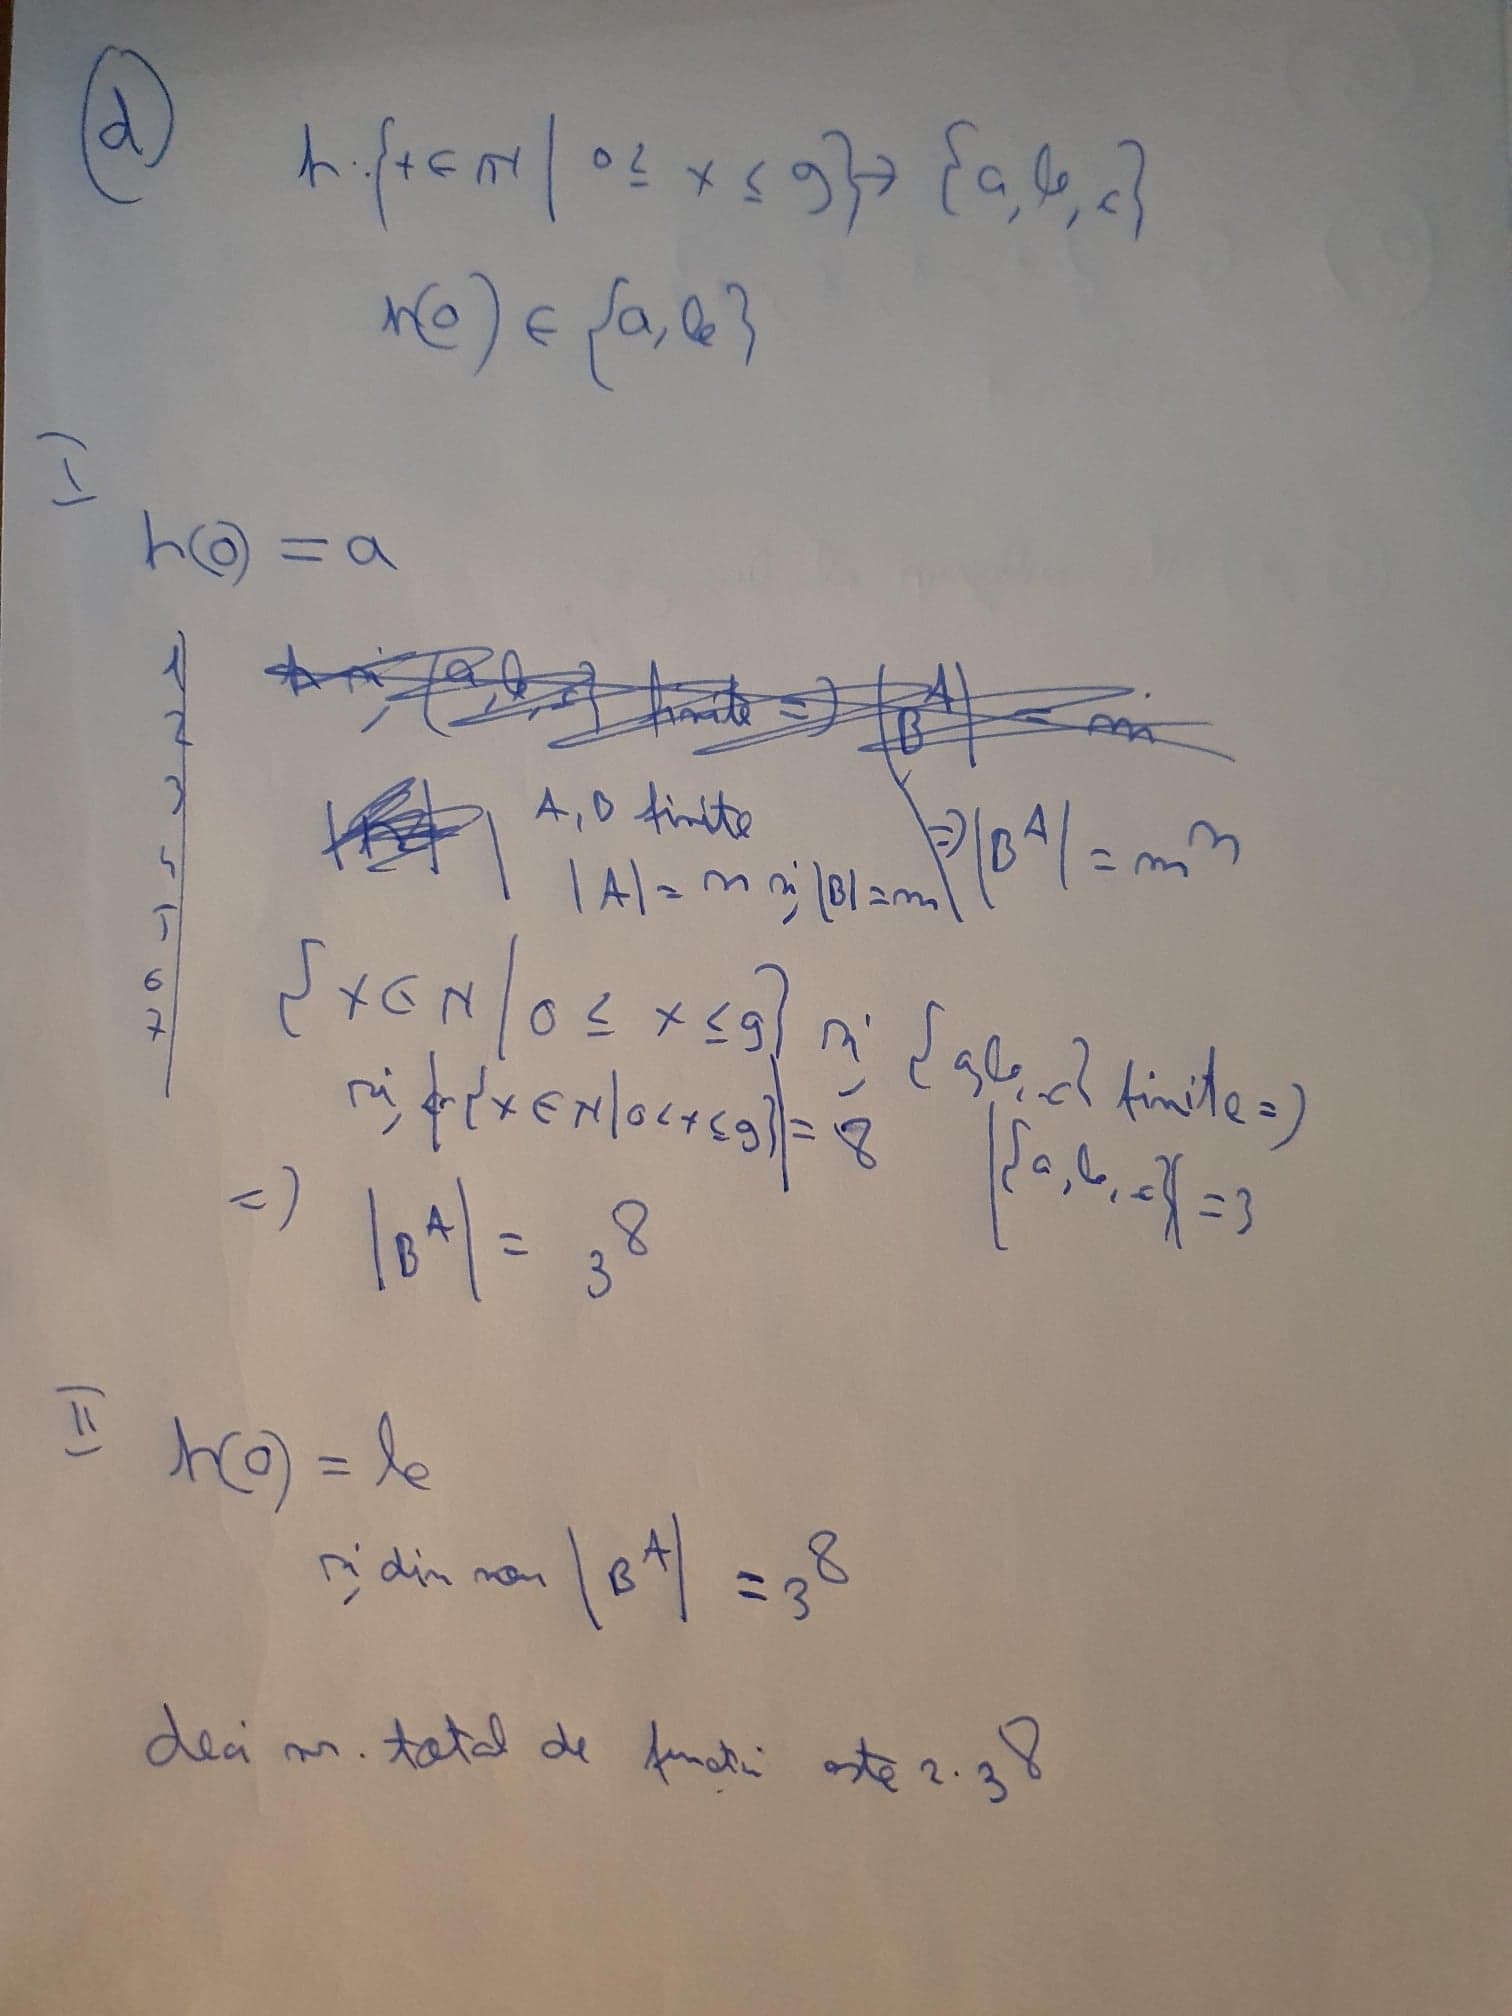 d)
h: {x ∈ N | 0 ≤ x ≤ 9} → {a, b, c}
h(0) ∈ {a, b}
I
h(0) = a
1
2
3
4
5
6
7
A, B finite
|A| = n și |B| = m
⇒ |B^A| = m^n
{x ∈ N | 0 ≤ x ≤ 9} și {a, b, c} finite ⇒
și |{x ∈ N | 0 < x ≤ 9}| = 8 |{a, b, c}| = 3
⇒ |B^A| = 3^8
II h(0) = b
și din nou |B^A| = 3^8
deci nr. total de funcții este 2 · 3^8